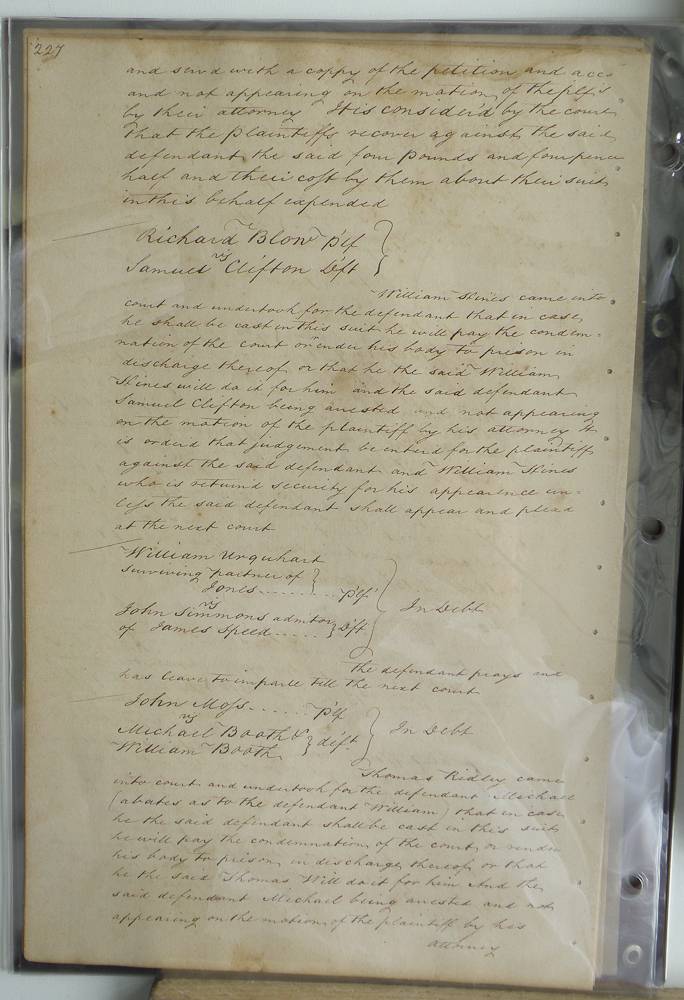 227
and servd with a coppy of the petition and acco
and not appearing on the motion of the plfs
by their attorney It is considerd by the court
that the plaintiffs recover against the said
defendant the said four pounds and four pence
half and their cost by them about their suit
in this behalf expended
Richard Blow plf
vs
Samuel Clifton Deft
William Hines came into
court and undertook for the defendant that in case
he shall be cast in this suit he will pay the condem=
nation of the court or render his body to prison in
discharge thereof or that he the said William
Hines will do it for him and the said defendant
Samuel Clifton being arrested and not appearing
on the motion of the plaintiff by his attorney It
is orderd that judgement be enterd for the plaintiff
against the said defendant and William Hines
who is returnd security for his appearence un=
less the said defendant shall appear and plead
at the next court
William Urquhart
surviving partner of
Jones ........ plf
vs
John Simmons admtor
of James Speed ..... Dift
In Debt
The defendant prays and
has leave to imparle till the next court
John Moss ...... plf
vs
Michael Booth &
William Booth dift
In Debt
Thomas Ridley came
into court and undertook for the defendant Michael
(abates as to the defendant William) that in case
he the said defendant shall be cast in this suit
he will pay the condemnation of the court or render
his body to prison in discharge thereof or that
he the said Thomas Will do it for him And the
said defendant Michael being arrested and not
appearing on the motion of the plaintiff by his
attorney